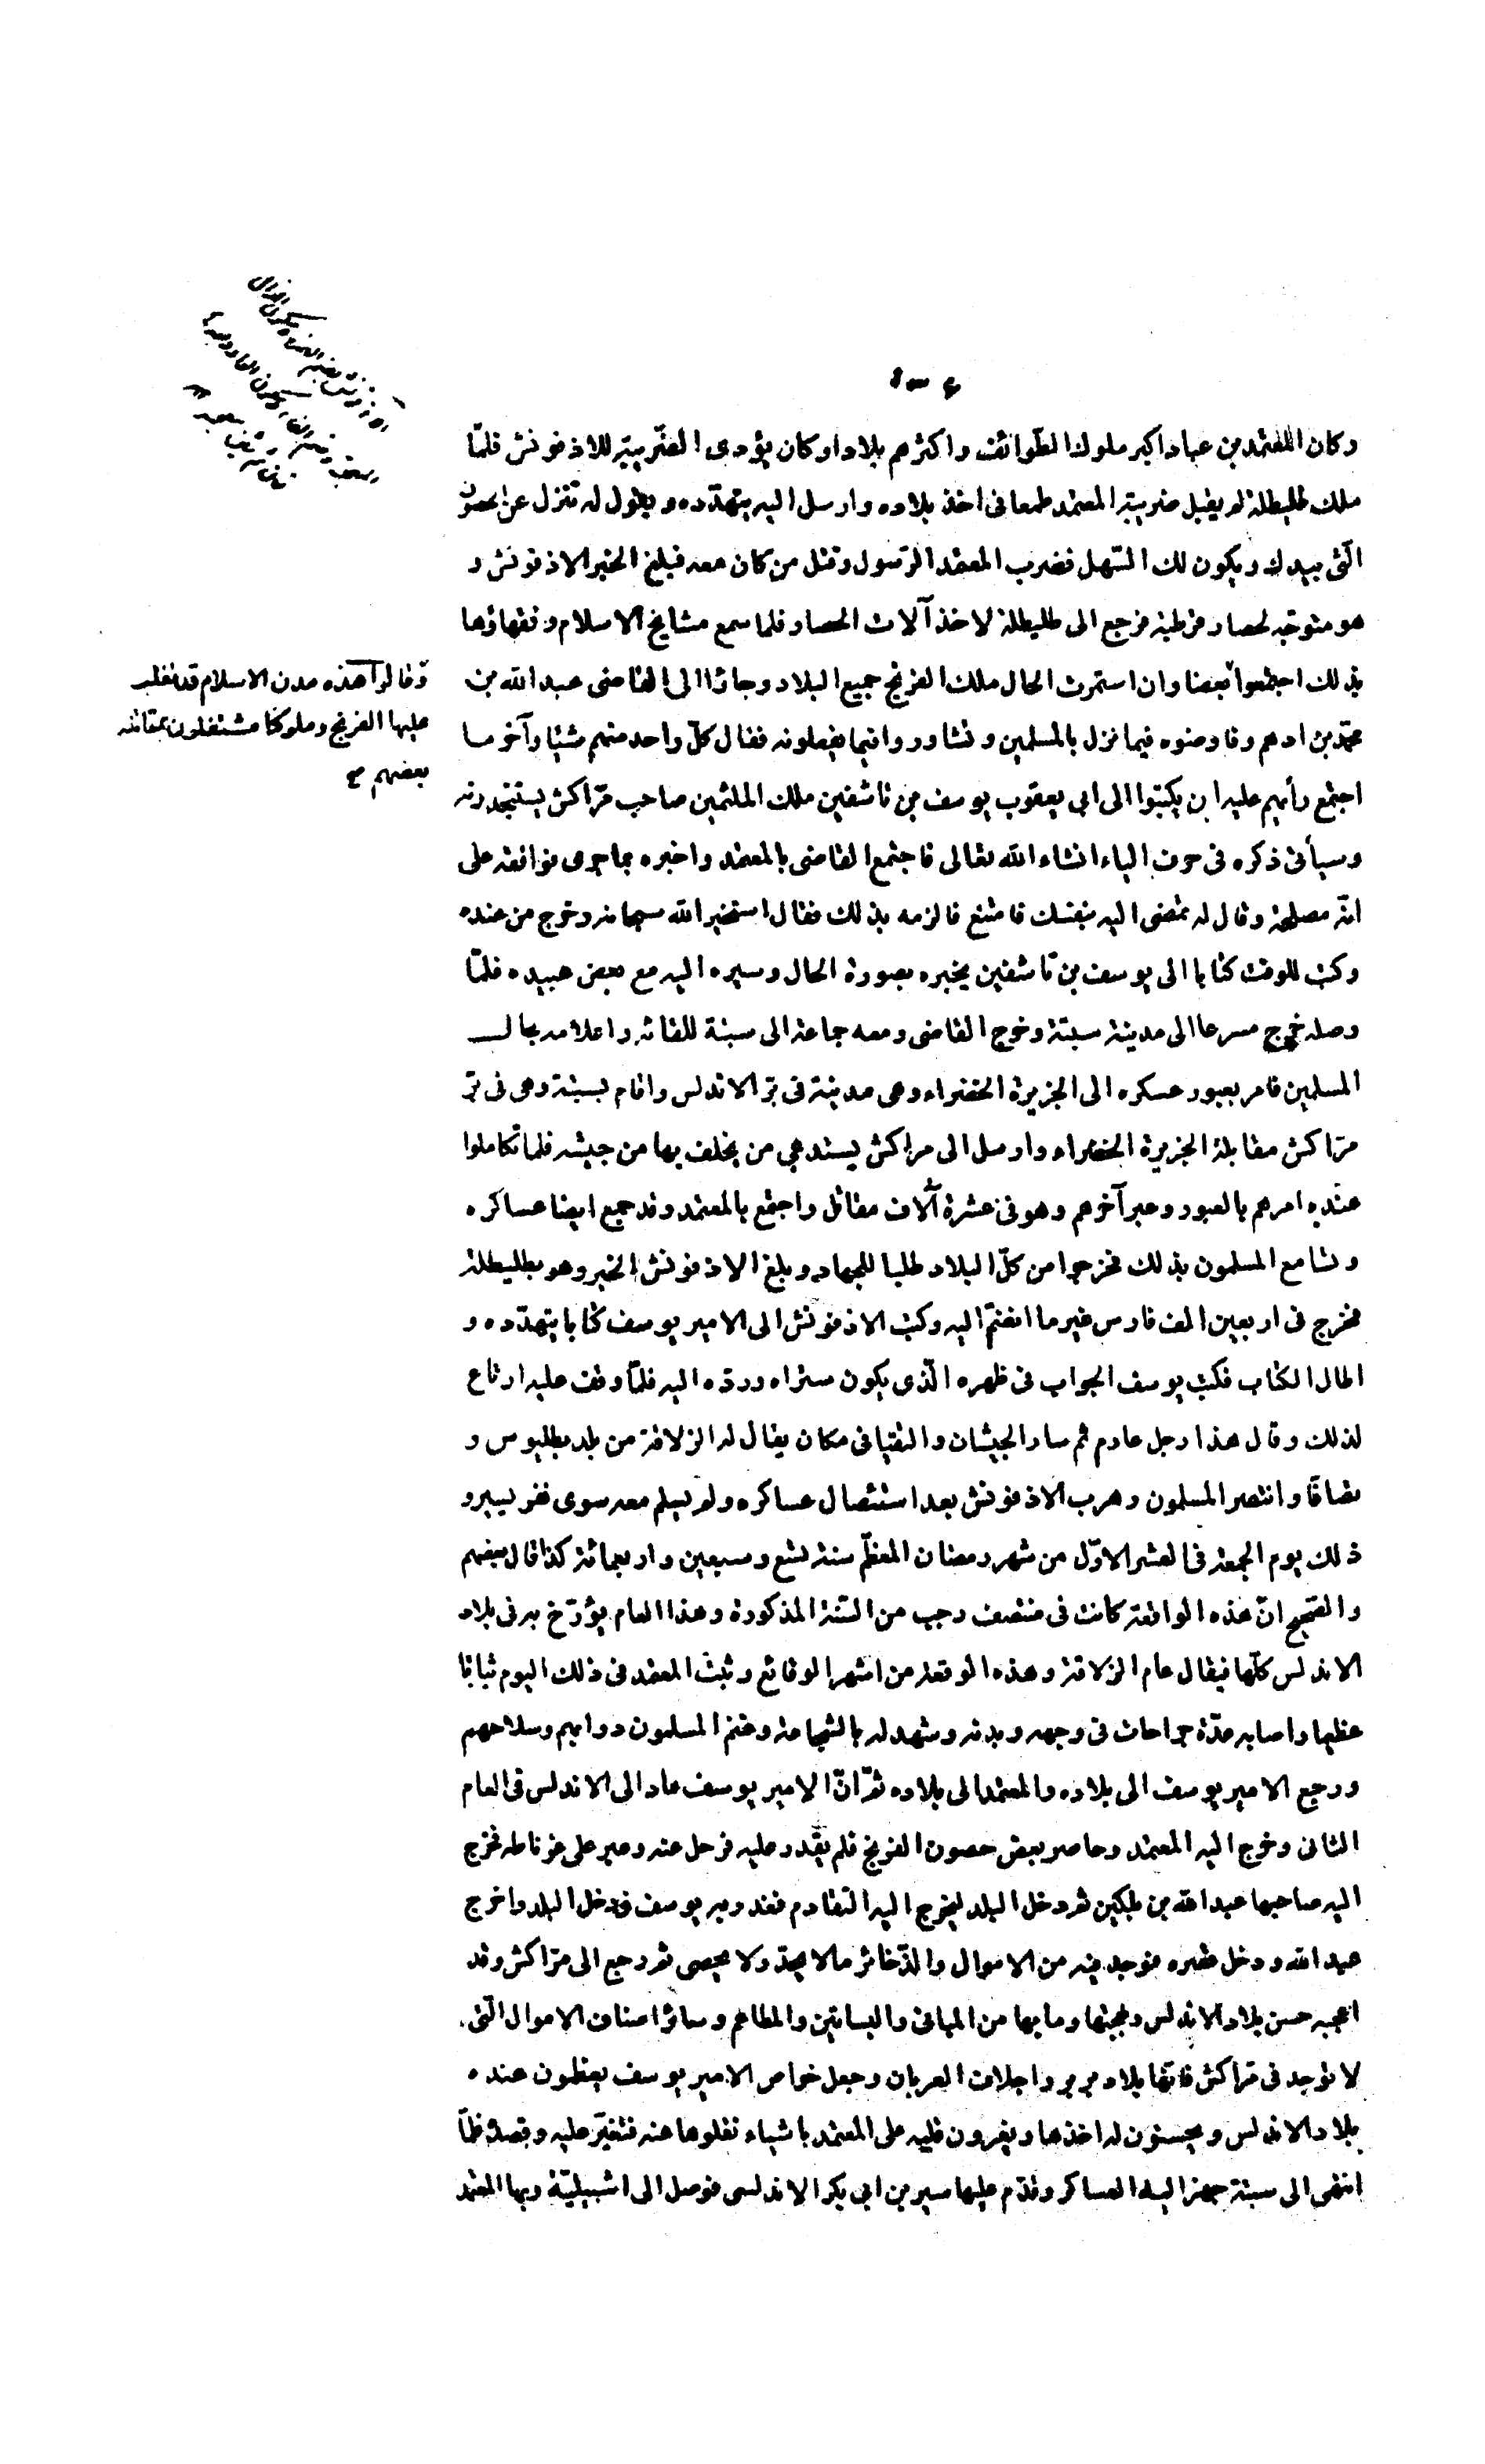 وكان المعتمد بن عباد اكبر ملوك الطوائف واكثرهم بلادا وكان يؤدى الضّريبة للاذفونش فلمّا
ملك طليطلة لم يقبل ضريبة المعتمد طمعا فى اخذ بلاده وارسل اليه يتهدّده ويقول له تنزل عن الحصون
الّتى بيدك ويكون لك السّهل فضرب المعتمد الرّسول وقتل من كان معه فبلغ الخبر الاذفونش و
هو متوجّه لحصار قرطبة فرجع الى طليطلة لاخذ آلات الحصار فلما سمع مشايخ الاسلام وفقهاؤها
بذلك اجتمعوا بعضا وان استمرت الحال ملك الفرنج جميع البلاد وجاؤا الى القاضى عبد الله بن
محمّد بن ادهم وفاوضوه فيما نزل بالمسلمين وتشاوروا فيما يفعلونه فقال كلّ واحد منهم شيئا وآخر ما
اجتمع رأيهم عليه ان يكتبوا الى ابى يعقوب يوسف بن تاشفين ملك الملثمين صاحب مرّاكش يستنجدونه
وسيأتى ذكره فى حرف الياء انشاء الله تعالى فاجتمع القاضى بالمعتمد واخبره بما جرى فوافقه على
انّه مصلحة وقال له تمضى اليه بنفسك فامتنع فالزمه بذلك فقال استخير الله سبحانه وخرج من عنده
وكتب للوقت كتابا الى يوسف بن تاشفين يخبره بصورة الحال وسيره اليه مع بعض عبيده فلمّا
وصله خرج مسرعا الى مدينة سبتة وخرج القاضى ومعه جماعة الى سبتة للقائه واعلامه بحال
المسلمين فامر بعبور عسكره الى الجزيرة الخضراء وهى مدينة فى برّ الاندلس واقام بسبتة وهى فى برّ
مرّاكش مقابلة الجزيرة الخضراء وارسل الى مراكش يستدعى من يخلف بها من جيشه فلما تكاملوا
عنده امرهم بالعبور وعبر آخرهم وهو فى عشرة آلاف مقاتل واجتمع بالمعتمد وقد جمع ايضا عساكره
وتسامع المسلمون بذلك فخرجوا من كلّ البلاد طلبا للجهاد وبلغ الاذفونش الخبر وهو بطليطلة
فخرج فى اربعين الف فارس غير ما انضمّ اليه وكتب الاذفونش الى الامير يوسف كتابا يتهدّده و
اطال الكتاب فكتب يوسف الجواب فى ظهره الّذى يكون ستراه وردّه اليه فلمّا وقف عليه ارتاع
لذلك وقال هذا رجل عازم ثم سار الجيشان والتقيا فى مكان يقال له الزلاقة من بلد بطليوس و
تصافّا وانتصر المسلمون وهرب الاذفونش بعد استئصال عساكره ولم يسلم معه سوى نفر يسير و
ذلك يوم الجمعة فى العشر الاوّل من شهر رمضان المعظّم سنة تسع وسبعين واربعمائة كذا قال بعضهم
والصّحيح انّ هذه الواقعة كانت فى منتصف رجب من السّنة المذكورة وهذا العام يؤرّخ به فى بلاد
الاندلس كلّها فيقال عام الزلاقة وهذه الوقعة من اشهر الوقائع وثبت المعتمد فى ذلك اليوم ثباتا
عظيما واصابه عدّة جراحات فى وجهه وبدنه وشهد له بالشجاعة وغنم المسلمون دوابهم وسلاحهم
ورجع الامير يوسف الى بلاده والمعتمد الى بلاده ثمّ انّ الامير يوسف عاد الى الاندلس فى العام
الثانى وخرج اليه المعتمد وحاصر بعض حصون الفرنج فلم يقدر عليه فرحل عنه وعبر على غرناطه فخرج
اليه صاحبها عبد الله بن بلكين ثم دخل البلد ليخرج اليه التقادم فغدر به يوسف ودخل البلد واخرج
عبد الله ودخل قصره فوجد فيه من الاموال والذّخائر مالا يحدّ ولا يحصى ثم رجع الى مرّاكش وقد
اعجبه حسن بلاد الاندلس وبهجتها وما بها من المبانى والبساتين والمطاعم وسائر اصناف الاموال الّتى
لا توجد فى مرّاكش فانّها بلاد بربر واجلاف العربان وجعل خواص الامير يوسف يعظمون عنده
بلاد الاندلس ويحسنون له اخذها ويغرون قلبه على المعتمد باشياء نقلوها عنه فتغيّر عليه وقصده فلمّا
انتهى الى سبتة جهز اليه العساكر وقدّم عليها سير بن ابى بكر الاندلسى فوصل الى اشبيليّة وبها المعتمد
وقالوا هذه مدن الاسلام قد تغلب
عليها الفرنج وملوكنا مشتغلون بمقاتلة
بعضهم